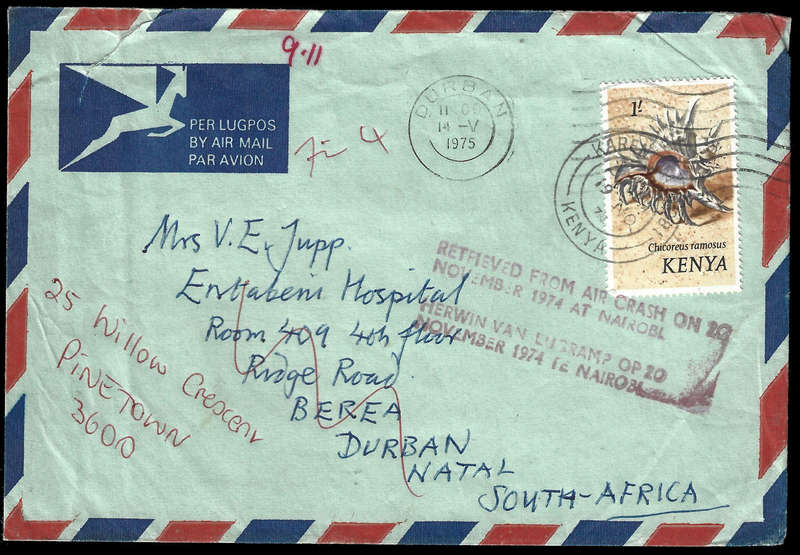 9.11
PER LUGPOS
BY AIR MAIL
PAR AVION
DURBAN
14 -V
1975
1/-
KAREN
KENYA
Chicoreus ramosus
KENYA
Mrs V. E. Jupp.
Entabeni Hospital
Room 409 4th floor
Ridge Road
BEREA
DURBAN
NATAL
SOUTH-AFRICA
RETRIEVED FROM AIR CRASH ON 20
NOVEMBER 1974 AT NAIROBI.
HERWIN VAN LUGRAMP OP 20
NOVEMBER 1974 TE NAIROBI.
25 Willow Crescent
PINETOWN
3600